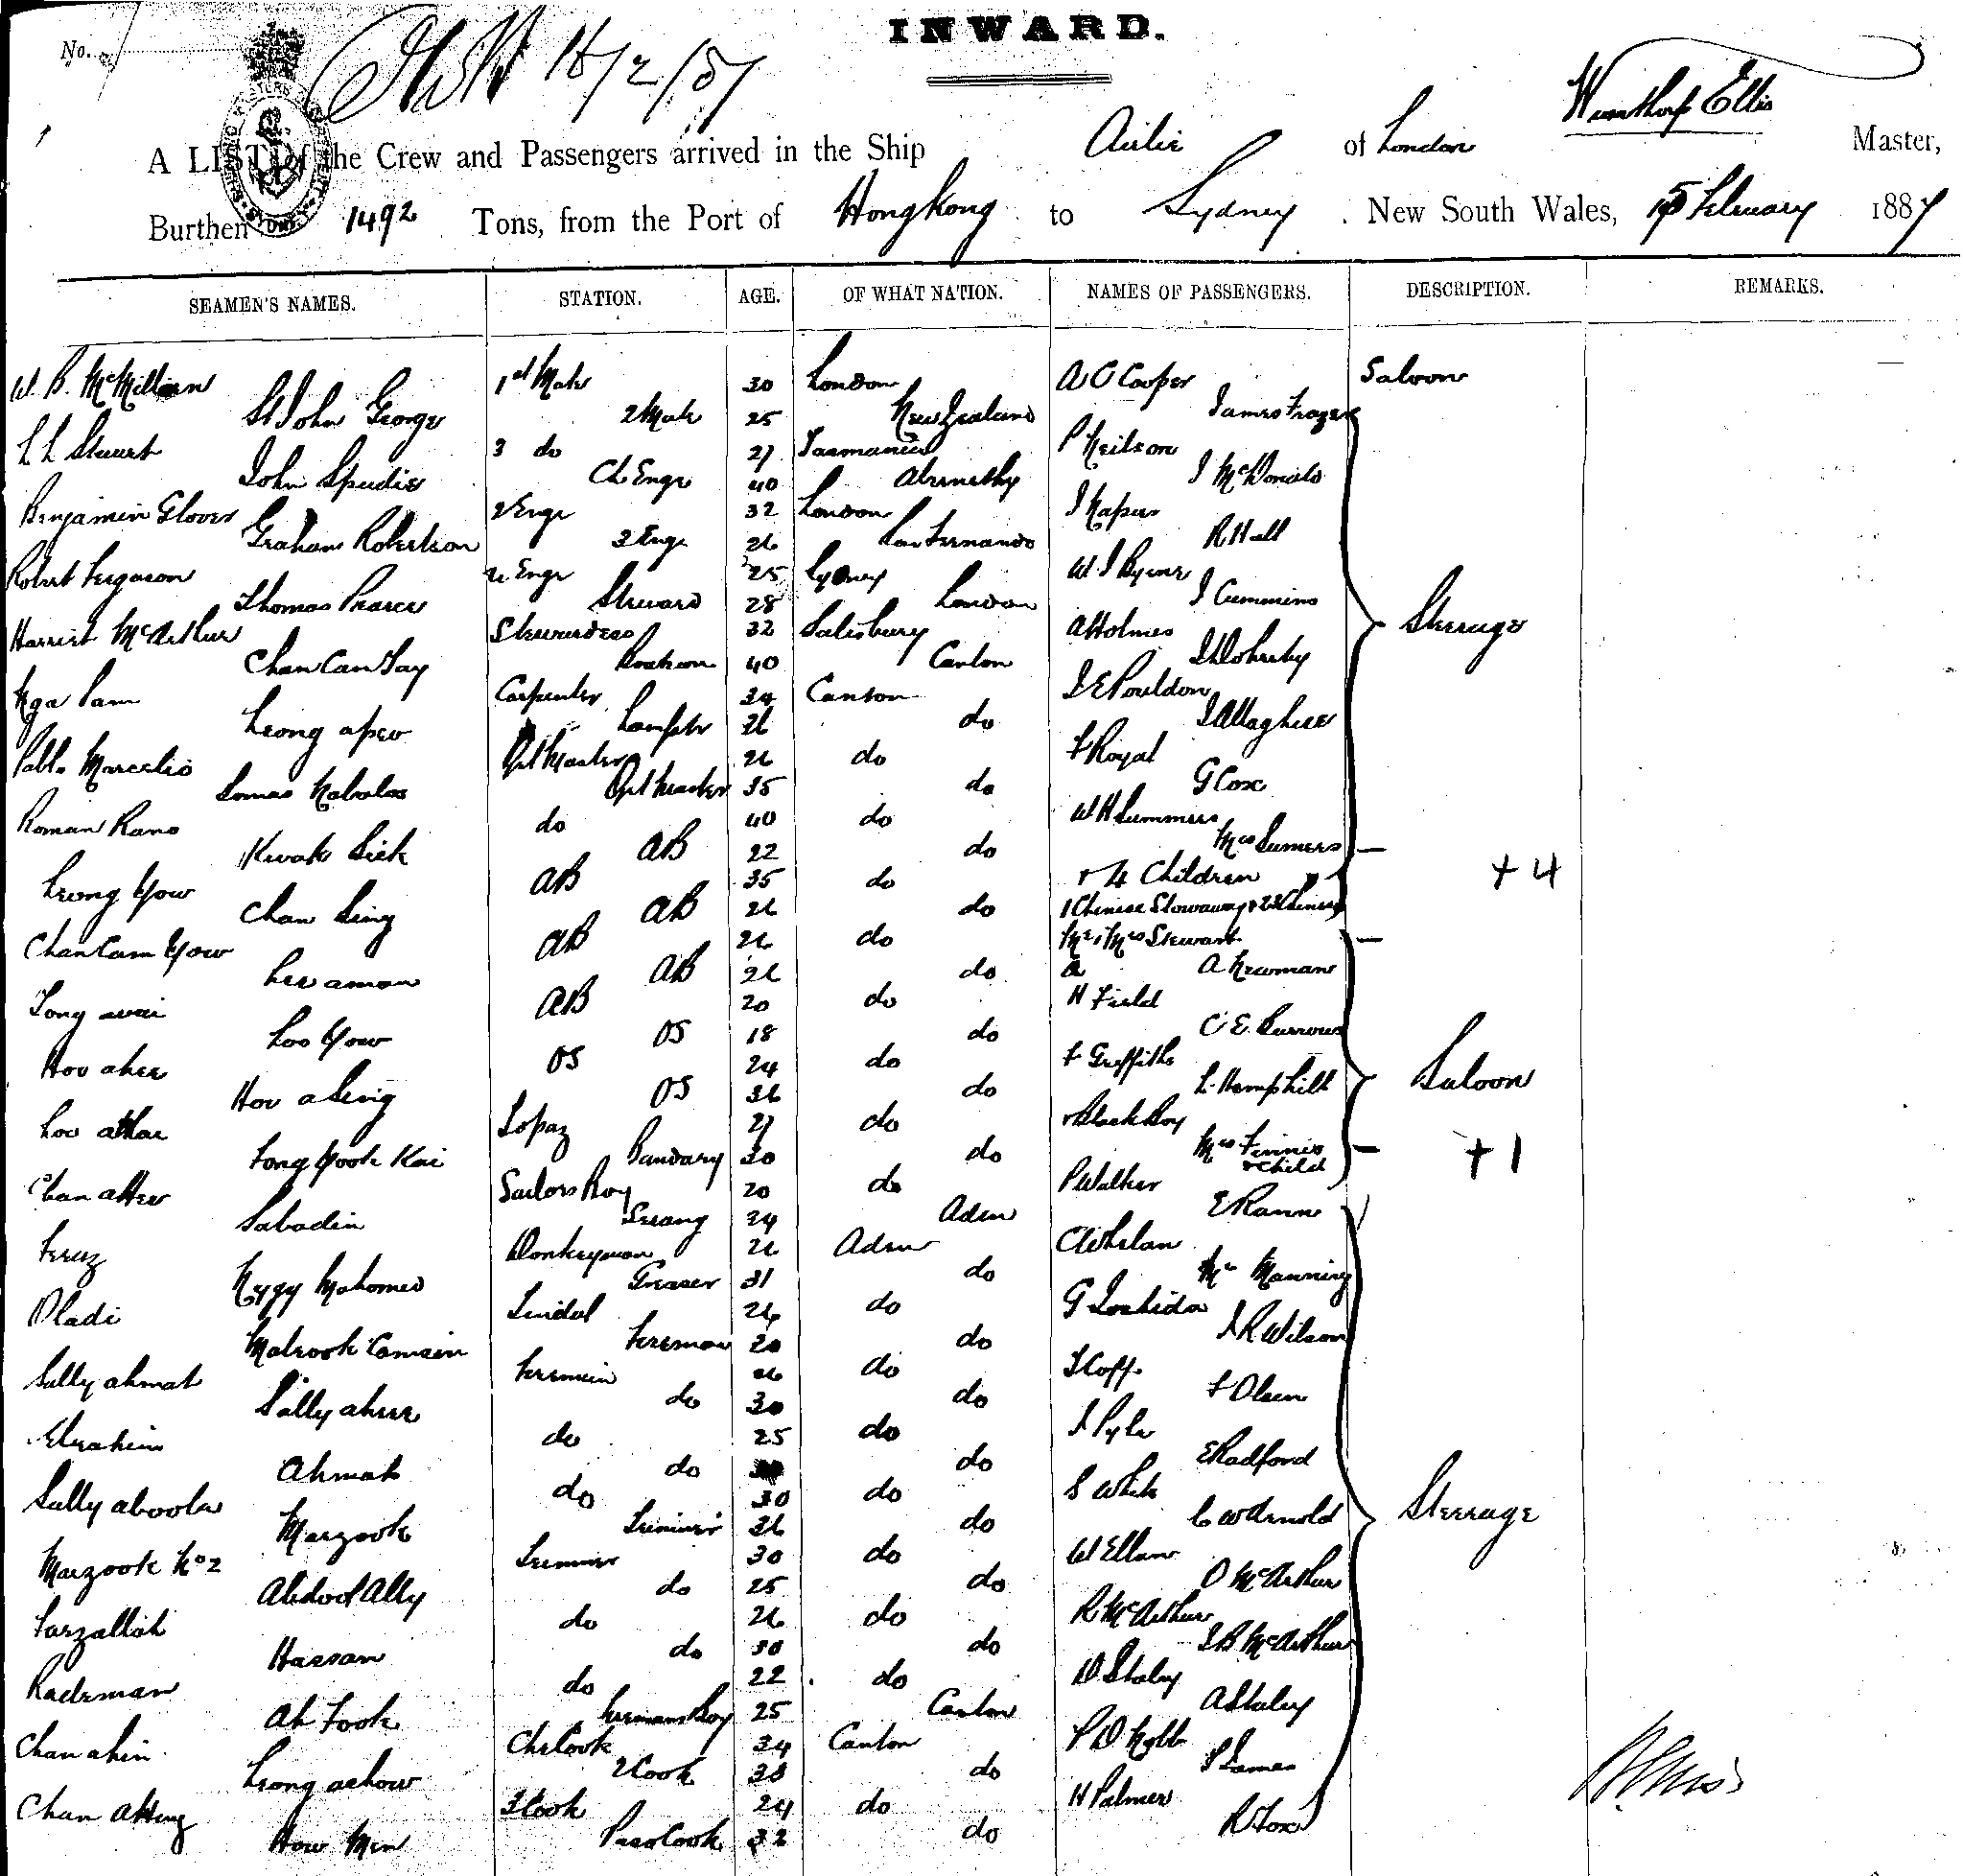 INWARD.
No.
A LIST of the Crew and Passengers arrived in the Ship Airlie of London Winthorp Ellis Master,
Burthen 1492 Tons, from the Port of Hong Kong to Sydney. New South Wales, 15 February 1887
SEAMEN'S NAMES. STATION. AGE. OF WHAT NATION. NAMES OF PASSENGERS. DESCRIPTION. REMARKS.
W. B. McMillan 1st Mate 30 London A C Cooper Saloon
St John George 2 Mate 25 New Zealand James Frazer
L L Stuart 3 do 27 Tasmania P Neilson
John Spudie Ch Engr 40 Abernethy J McDonald
Benjamin Glover 2 Engr 32 London J Napier
Graham Robertson 3 Engr 26 San Fernando R Hall
Robert Ferguson 4 Engr 25 Sydney W J Byrne
Thomas Pearce Steward 28 London J Cummins
Harriet McArthur Stewardess 32 Salisbury A Holmes Steerage
Chan Can Tay 40 Canton J Doherty
Nga Pam Carpenter 34 Canton J E Pouldon
Leong apew Lamptr 26 do
Pablo Marcelio Qrt Master 26 do F Royal
Lomas Nabalas Qrt Master 35 do G Cox
Roman Rano do 40 do W H Summers
Kwok Sick AB 22 do Mrs Sumers
Leong Yow AB 35 do + 4 Children + 4
Chan Sing AB 26 do 1 Chinese Stowaway & 23 Chinese
Chan Cam Yow AB 26 do Mr & Mrs Stewart
Lee amon AB 26 do A Newman
Tong wai AB 20 do H Field
Loo Yow OS 18 do C E Burrows
Hoo ahee OS 24 do F Griffiths
Hoo a Sing OS 36 do L. Hemphill Saloon
Loo athoe Lopaz 27 do + Black Boy
Fong Yook Kai Bandary 30 do Mrs Finnis + child + 1
Chan attew Sailors Boy 20 do P Walker
Sabadin Serang 24 Aden E Rann
Feruz Donkeyman 26 Aden C Whelan
Greaser 31 do Mr Manning
Oladi Sindal 26 do G
Mabrook Fireman 30 do J R Wilson
Sally ahmat Firemen 26 do J Coff
Sally aheee do 30 do F Olsen
Ebrahim do 25 do J Pyle
Ahmat do do E Radford
Sally aboola do 30 do S White
Marzook Trimmer 26 do C W Arnold Steerage
Marzook No 2 Trimmer 30 do W Ellan
Abdool Ally do 25 do D McArthur
Farzallah do 26 do R McArthur
Hassan do 30 do J B McArthur
Radeeman do 22 do D Staley
Ah Fook Firemans Boy 25 Canton A Staley
Chan ahin Ch Cook 34 Canton P D
Leong achow 2 Cook 38 do P James
Chan Ahing 3 Cook 24 do H Palmer
How Min Pass Cook 32 do R Fox